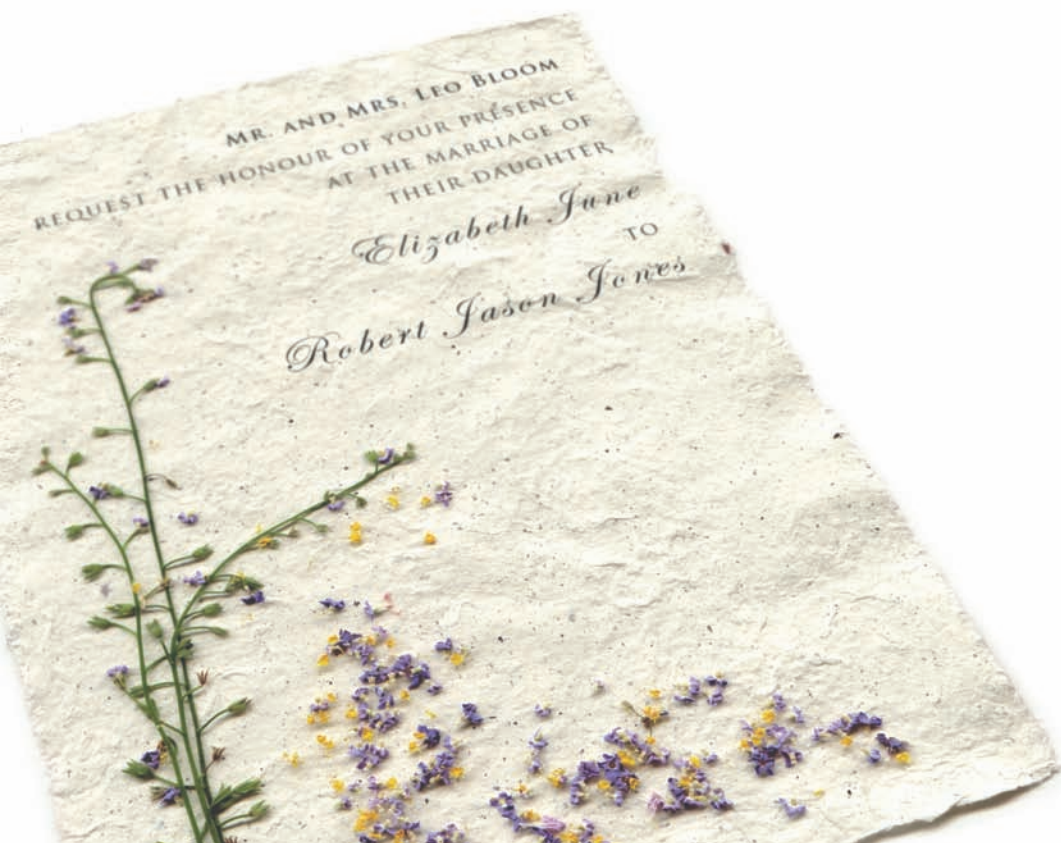 Mr. and Mrs. Leo Bloom
request the honour of your presence
at the marriage of
their daughter
Elizabeth June
to
Robert Jason Jones